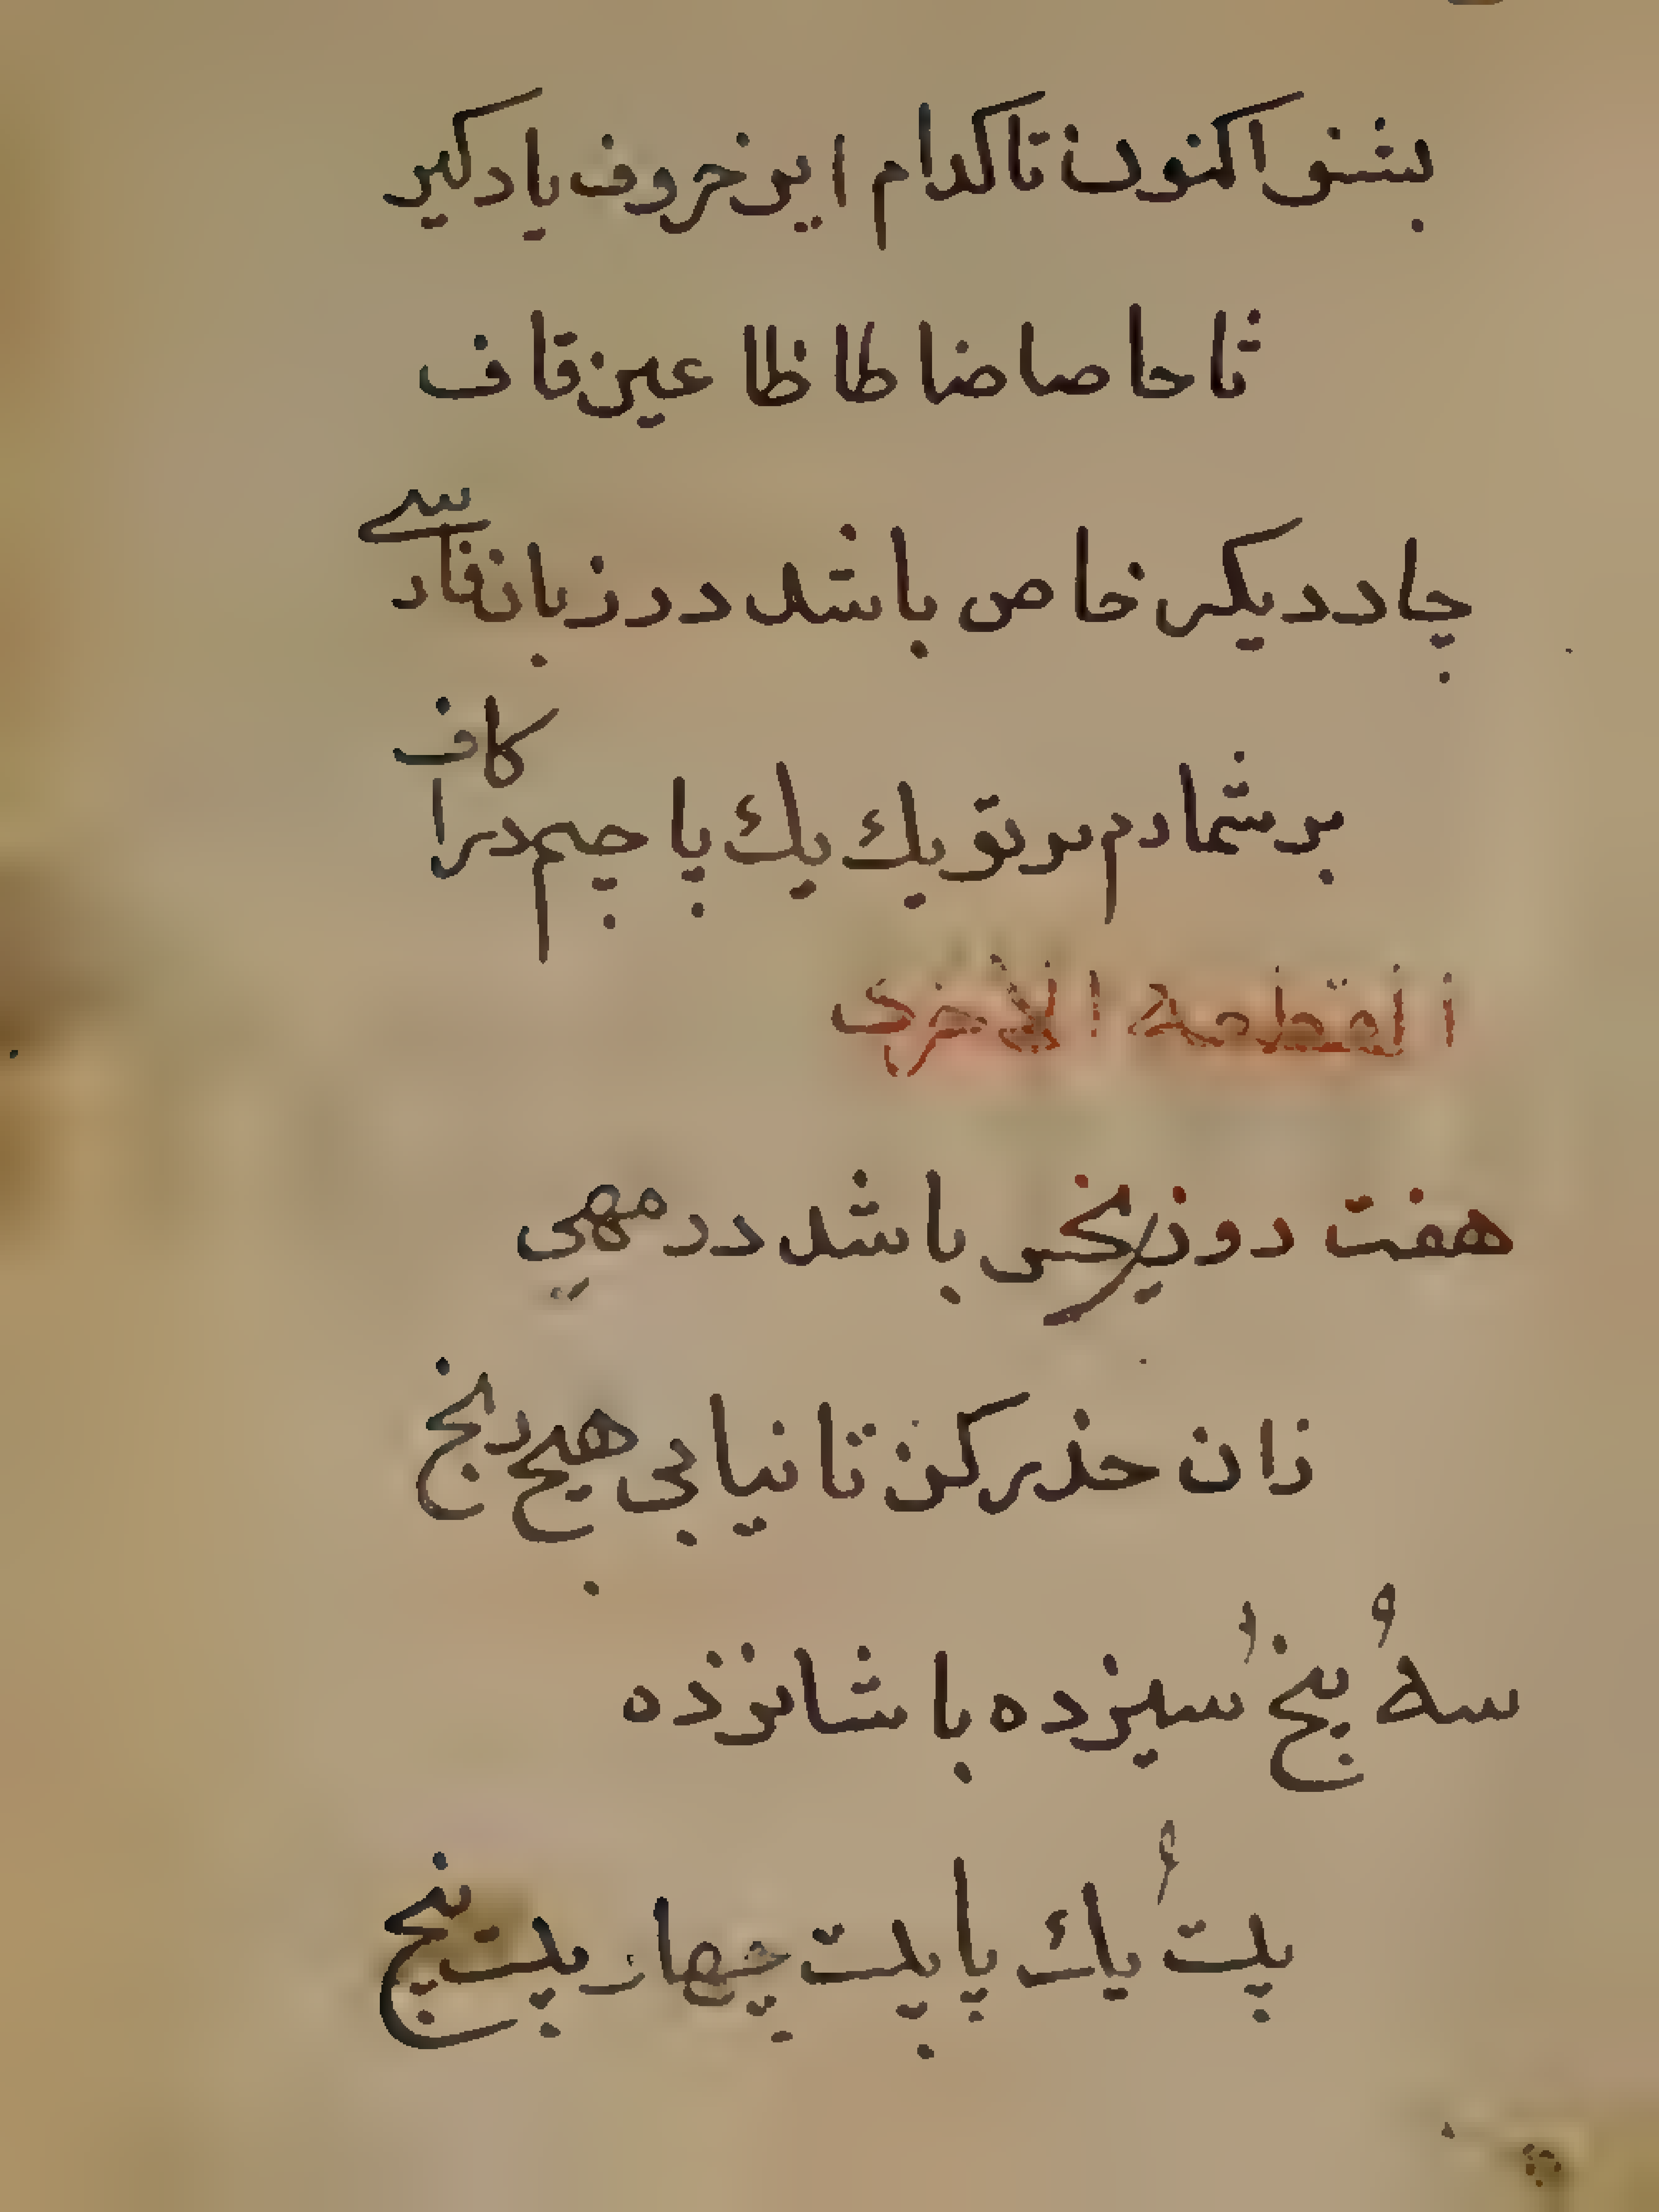 بشنو اکنون تا کدام این خروف یاد کیر
ثا حا صا ضا طا ظا عین قاف
چار دیکر خاص باشد در زبان فارسے
بر شمارم بر تو یك یك پا چیم را کاف
القطعة الاخرى
هفت روز نحس باشد در مهی
زان حذر کن تا نیابی هیچ رنج
سه و پنج و سیزده با شانزده
پیست و یك با بیست چهار بیست پنج